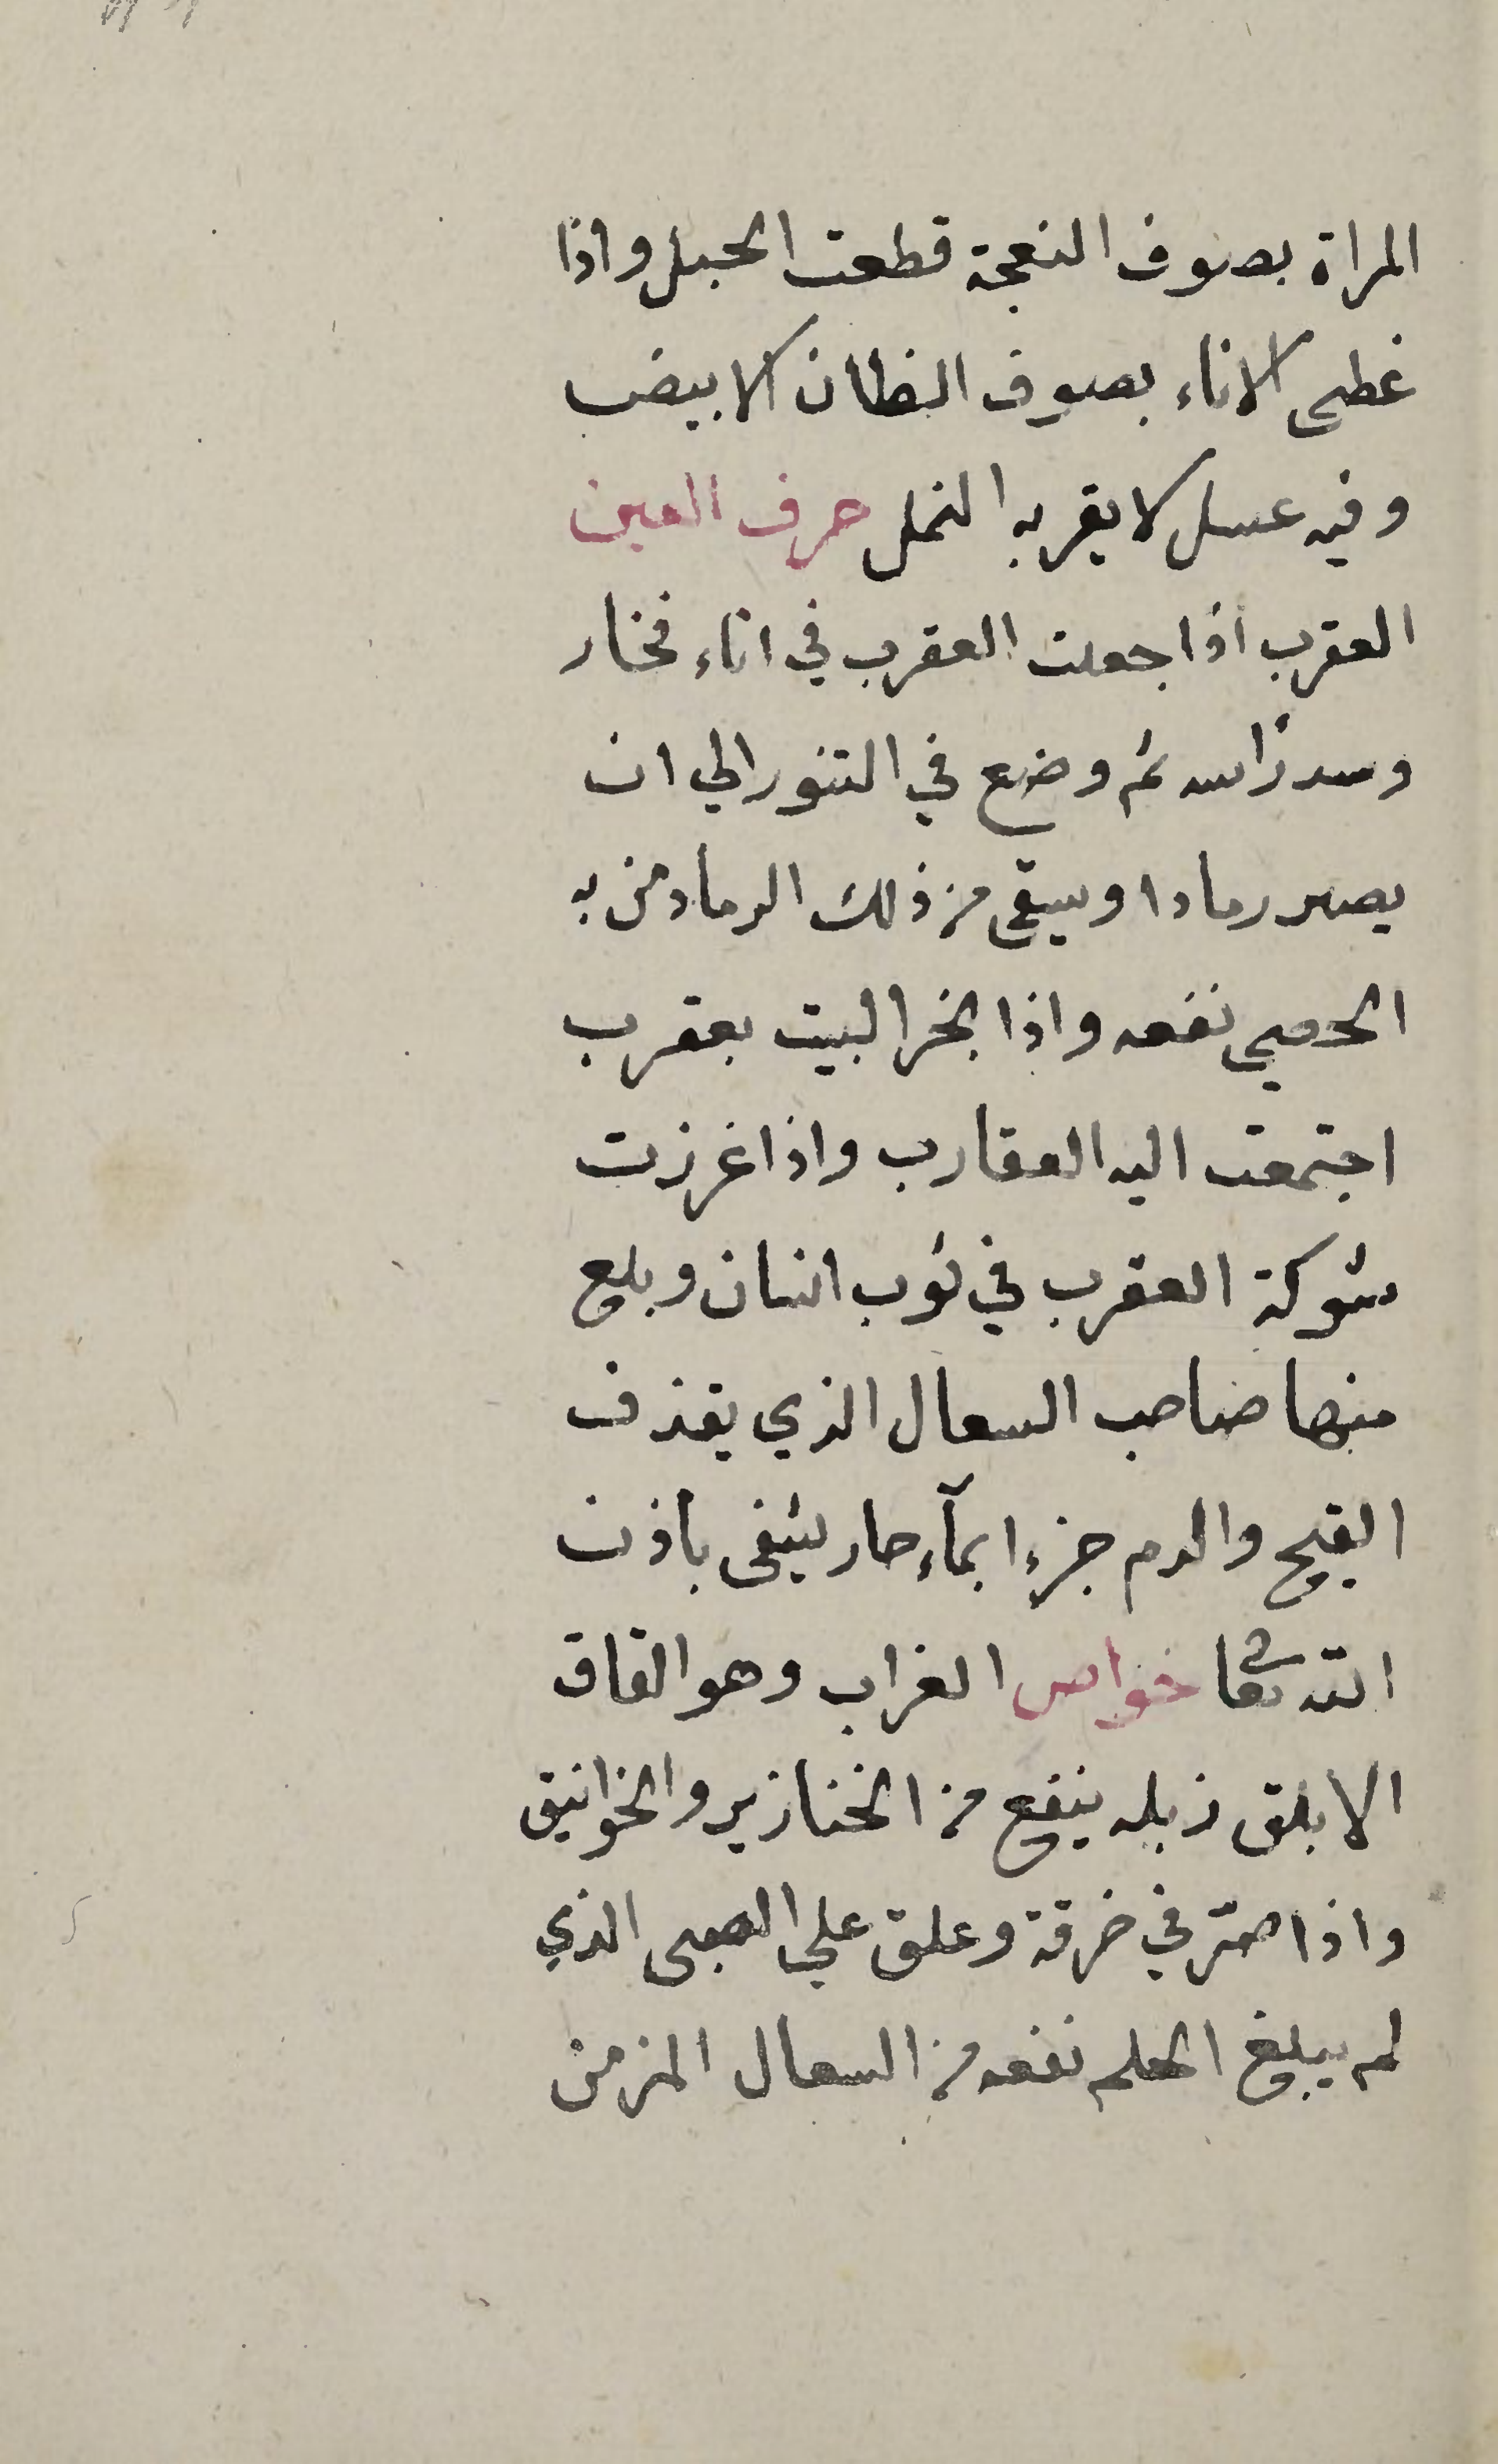 المراة بصوف النعجة قطعت الحبل واذا
غطى الاناء بصوف الظان الابيض
وفيه عسل لا يقربه النمل حرف العين
العقرب اذا جعلت العقرب في اناء فخار
وسد رأسه ثم وضع في التنور الي ان
يصير رمادا وسقى من ذلك الرماد من به
الحصى نفعه واذا بخر البيت بعقرب
اجتمعت اليه العقارب واذا غرزت
شوكة العقرب في ثوب انسان وبلع
منها صاحب السعال الذي يقذف
القيح والدم جزءا بمآء حار يشفى باذن
الله تعا خواص الغراب وهو القاق
الابلق زبله ينفع من الخنازير والخوانيق
واذا صر في خرقة وعلق علي الصبى الذي
لم يبلغ الحلم نفعه من السعال المزمن